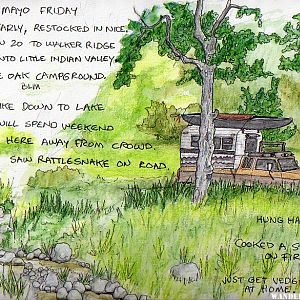 MAYO FRIDAY
EARLY, RESTOCKED IN NICE,
20 TO WALKER RIDGE
INTO LITTLE INDIAN VALLEY
OAK CAMPGROUND.
BLM
DOWN TO LAKE
WILL SPEND WEEKEND
HERE AWAY FROM CROWD.
SAW RATTLESNAKE ON ROAD.
HUNG HA
COOKED A
ON FIR
JUST GET VEDG
AT HOME.